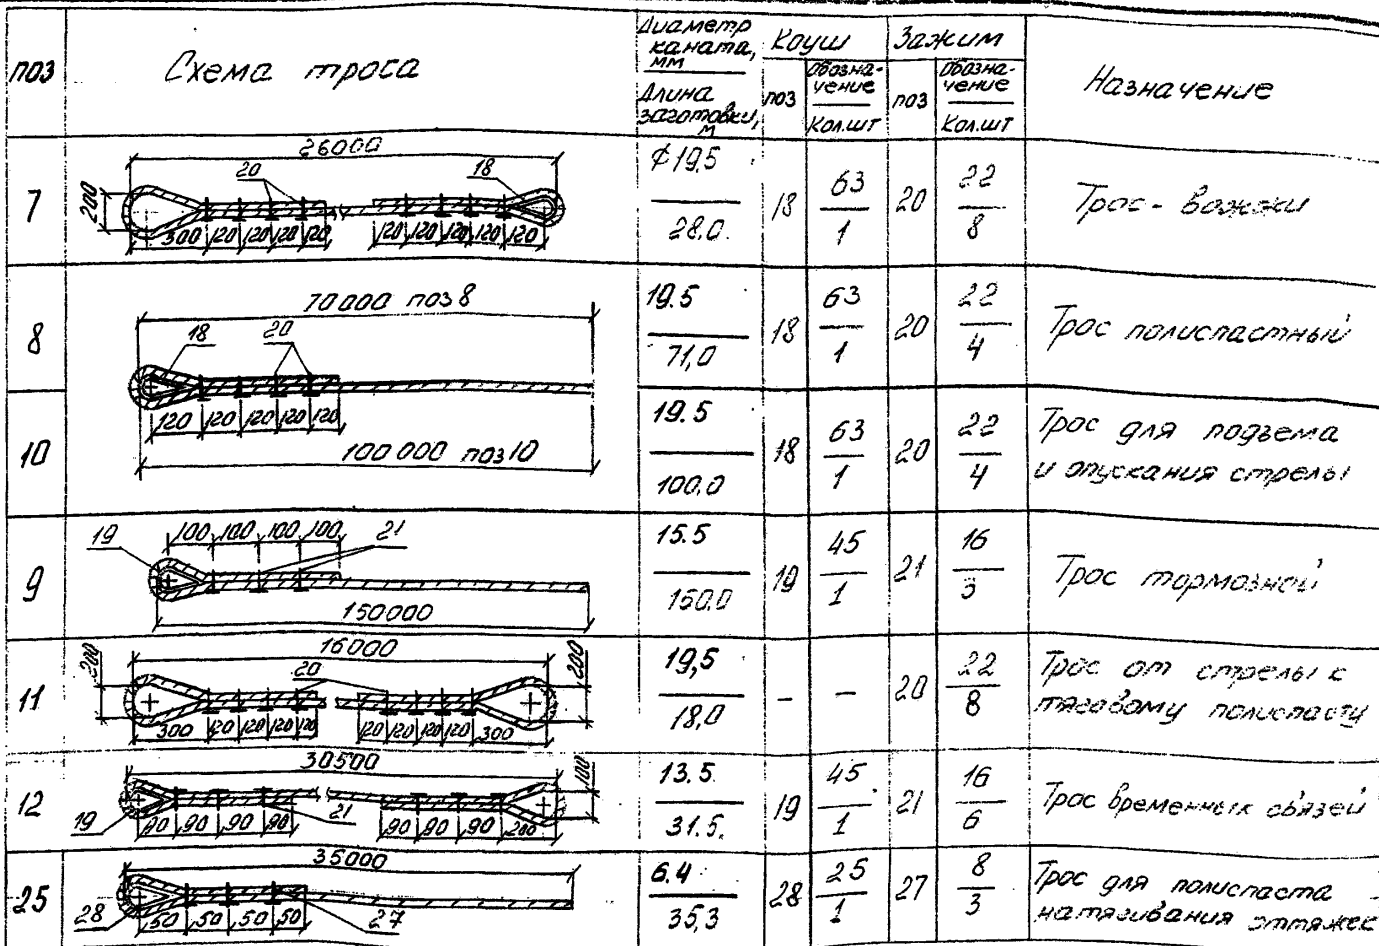 поз
Схема троса
Диаметр каната, мм
Длина заготовки, м
Коуш
Зажим
поз
обозначение
Кол.шт
поз
обозначение
Кол.шт
Назначение
7
26000
200
20
18
300 120 120 120 120
120 120 120 120 120
∅19,5
28.0.
18
63
1
20
22
8
Трос-вожжи
8
70000 поз 8
18
20
120 120 120 120 120
19.5
71,0
18
63
1
20
22
4
Трос полиспастный
10
100 000 поз 10
19.5
100,0
18
63
1
20
22
4
Трос для подъема
и опускания стрелы
9
19
100 100 100 100
21
150000
15.5
150.0
19
45
1
21
16
3
Трос тормозной
11
16000
200
20
200
300 120 120 120 120
120 120 120 120 300
19,5
18,0
-
-
20
22
8
Трос от стрелы к
тяговому полиспасту
12
30500
100
19
21
90 90 90 90
90 90 90 200
13.5
31.5.
19
45
1
21
16
6
Трос временных связей
25
35000
28
27
50 50 50 50
6.4
35,3
28
25
1
27
8
3
Трос для полиспаста
натягивания оттяжес